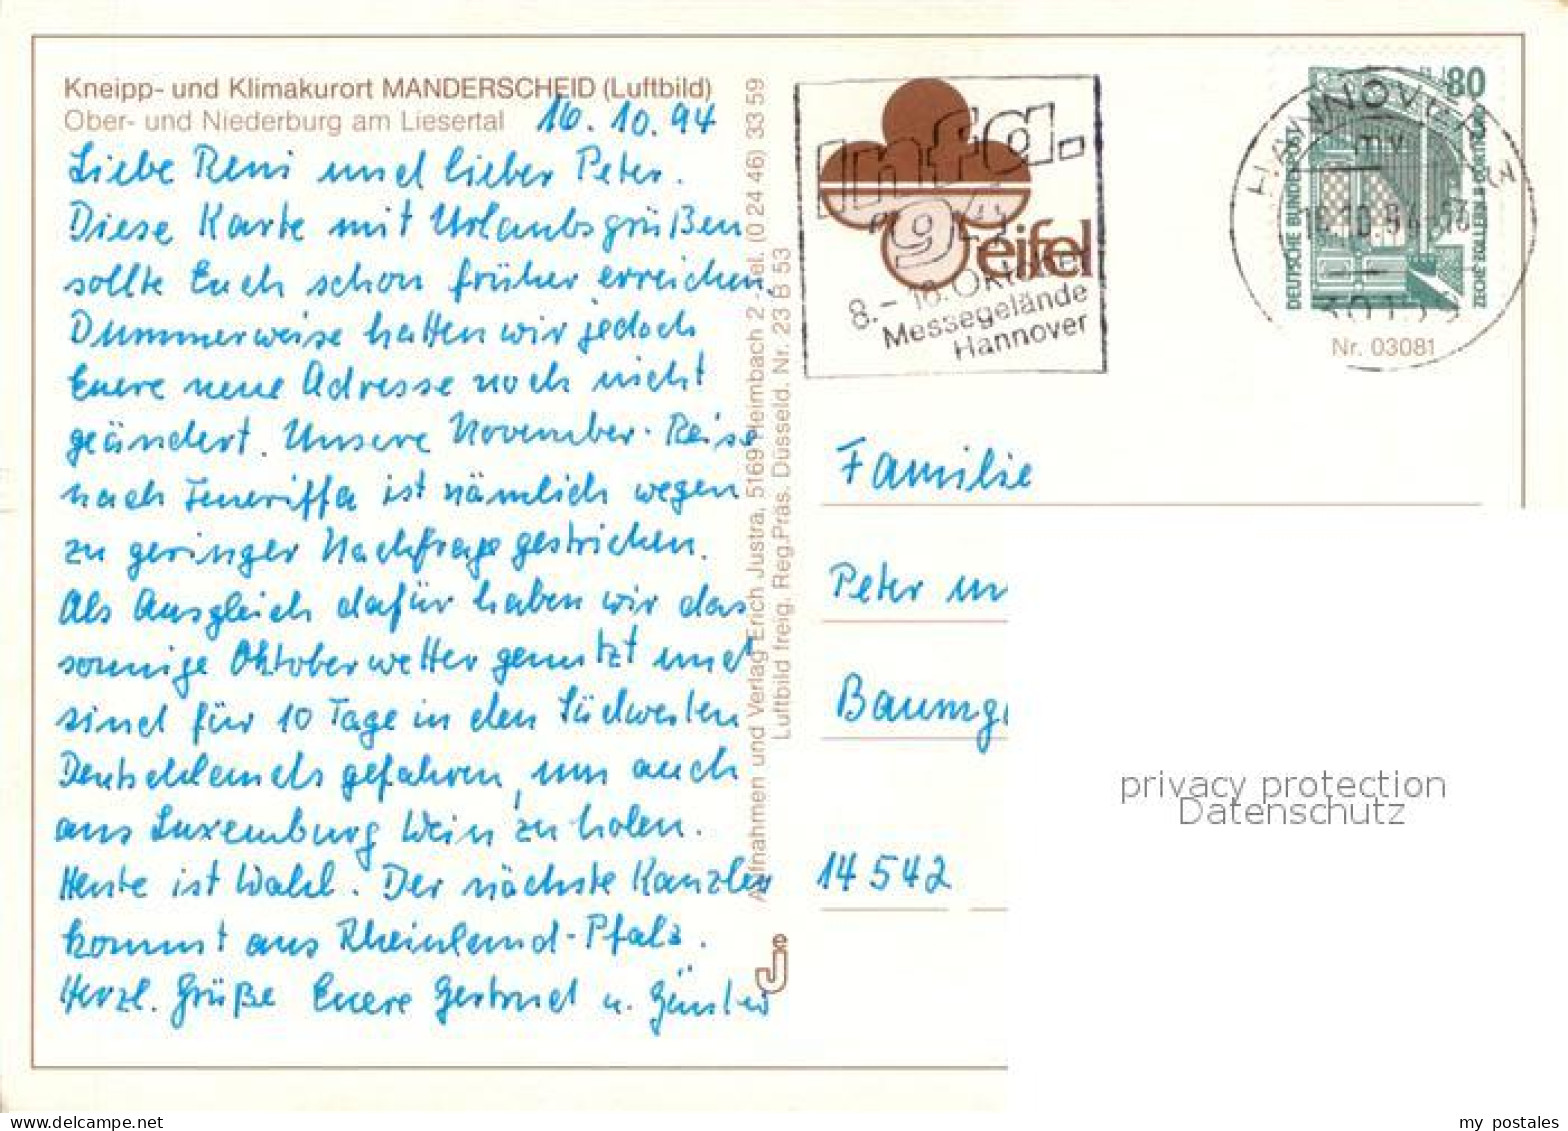 Kneipp- und Klimakurort MANDERSCHEID (Luftbild)
Ober- und Niederburg am Liesertal
16.10.94
Liebe Reni und lieber Peter.
Diese Karte mit Urlaubsgrüßen
sollte Euch schon früher erreichen.
Dummerweise hatten wir jedoch
Euere neue Adresse noch nicht
geändert. Unsere November-Reise
nach Teneriffa ist nämlich wegen
zu geringer Nachfrage gestrichen.
Als Ausgleich dafür haben wir das
sonnige Oktoberwetter genutzt und
sind für 10 Tage in den Südwesten
Deutschlands gefahren, um auch
aus Luxemburg Wein zu holen.
Heute ist Wahl. Der nächste Kanzler
kommt aus Rheinland-Pfalz.
Herzl. Grüße Euere Gertrud u. Günter
Aufnahmen und Verlag Erich Justra, 5169 Heimbach 2 - Tel. (0 24 46) 33 59
Luftbild freig. Reg.Präs. Düsseld. Nr. 23 B 53
Je
Infa.
94
eifel
8.– 16. Oktober
Messegelände
Hannover
80
DEUTSCHE BUNDESPOST
ZECHE ZOLLERN II DORTMUND
HANNOVER
mv
16.10.94
30159
Nr. 03081
Familie
Peter
14542
privacy protection
Datenschutz
my postales